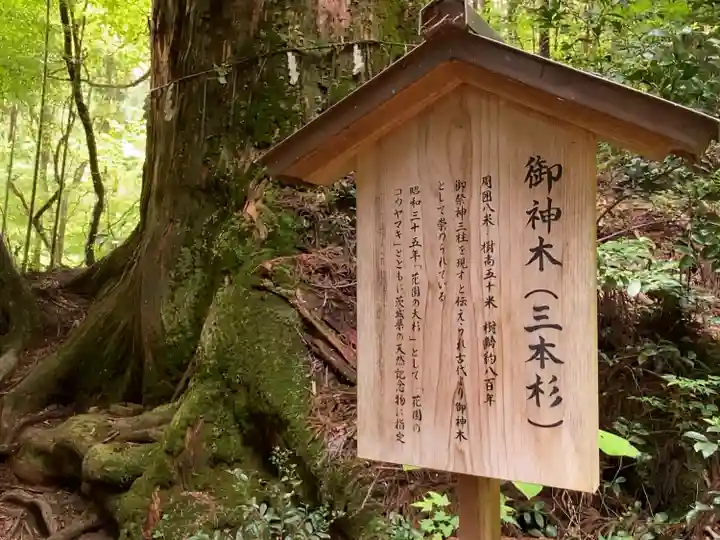 御神木(三本杉)
周囲八米 樹高五十米 樹齢約八百年
御祭神三柱を現すと伝えられ古代より御神木
として崇められている
昭和三十五年「花園の大杉」として「花園の
コウヤマキ」とともに茨城県の天然記念物に指定